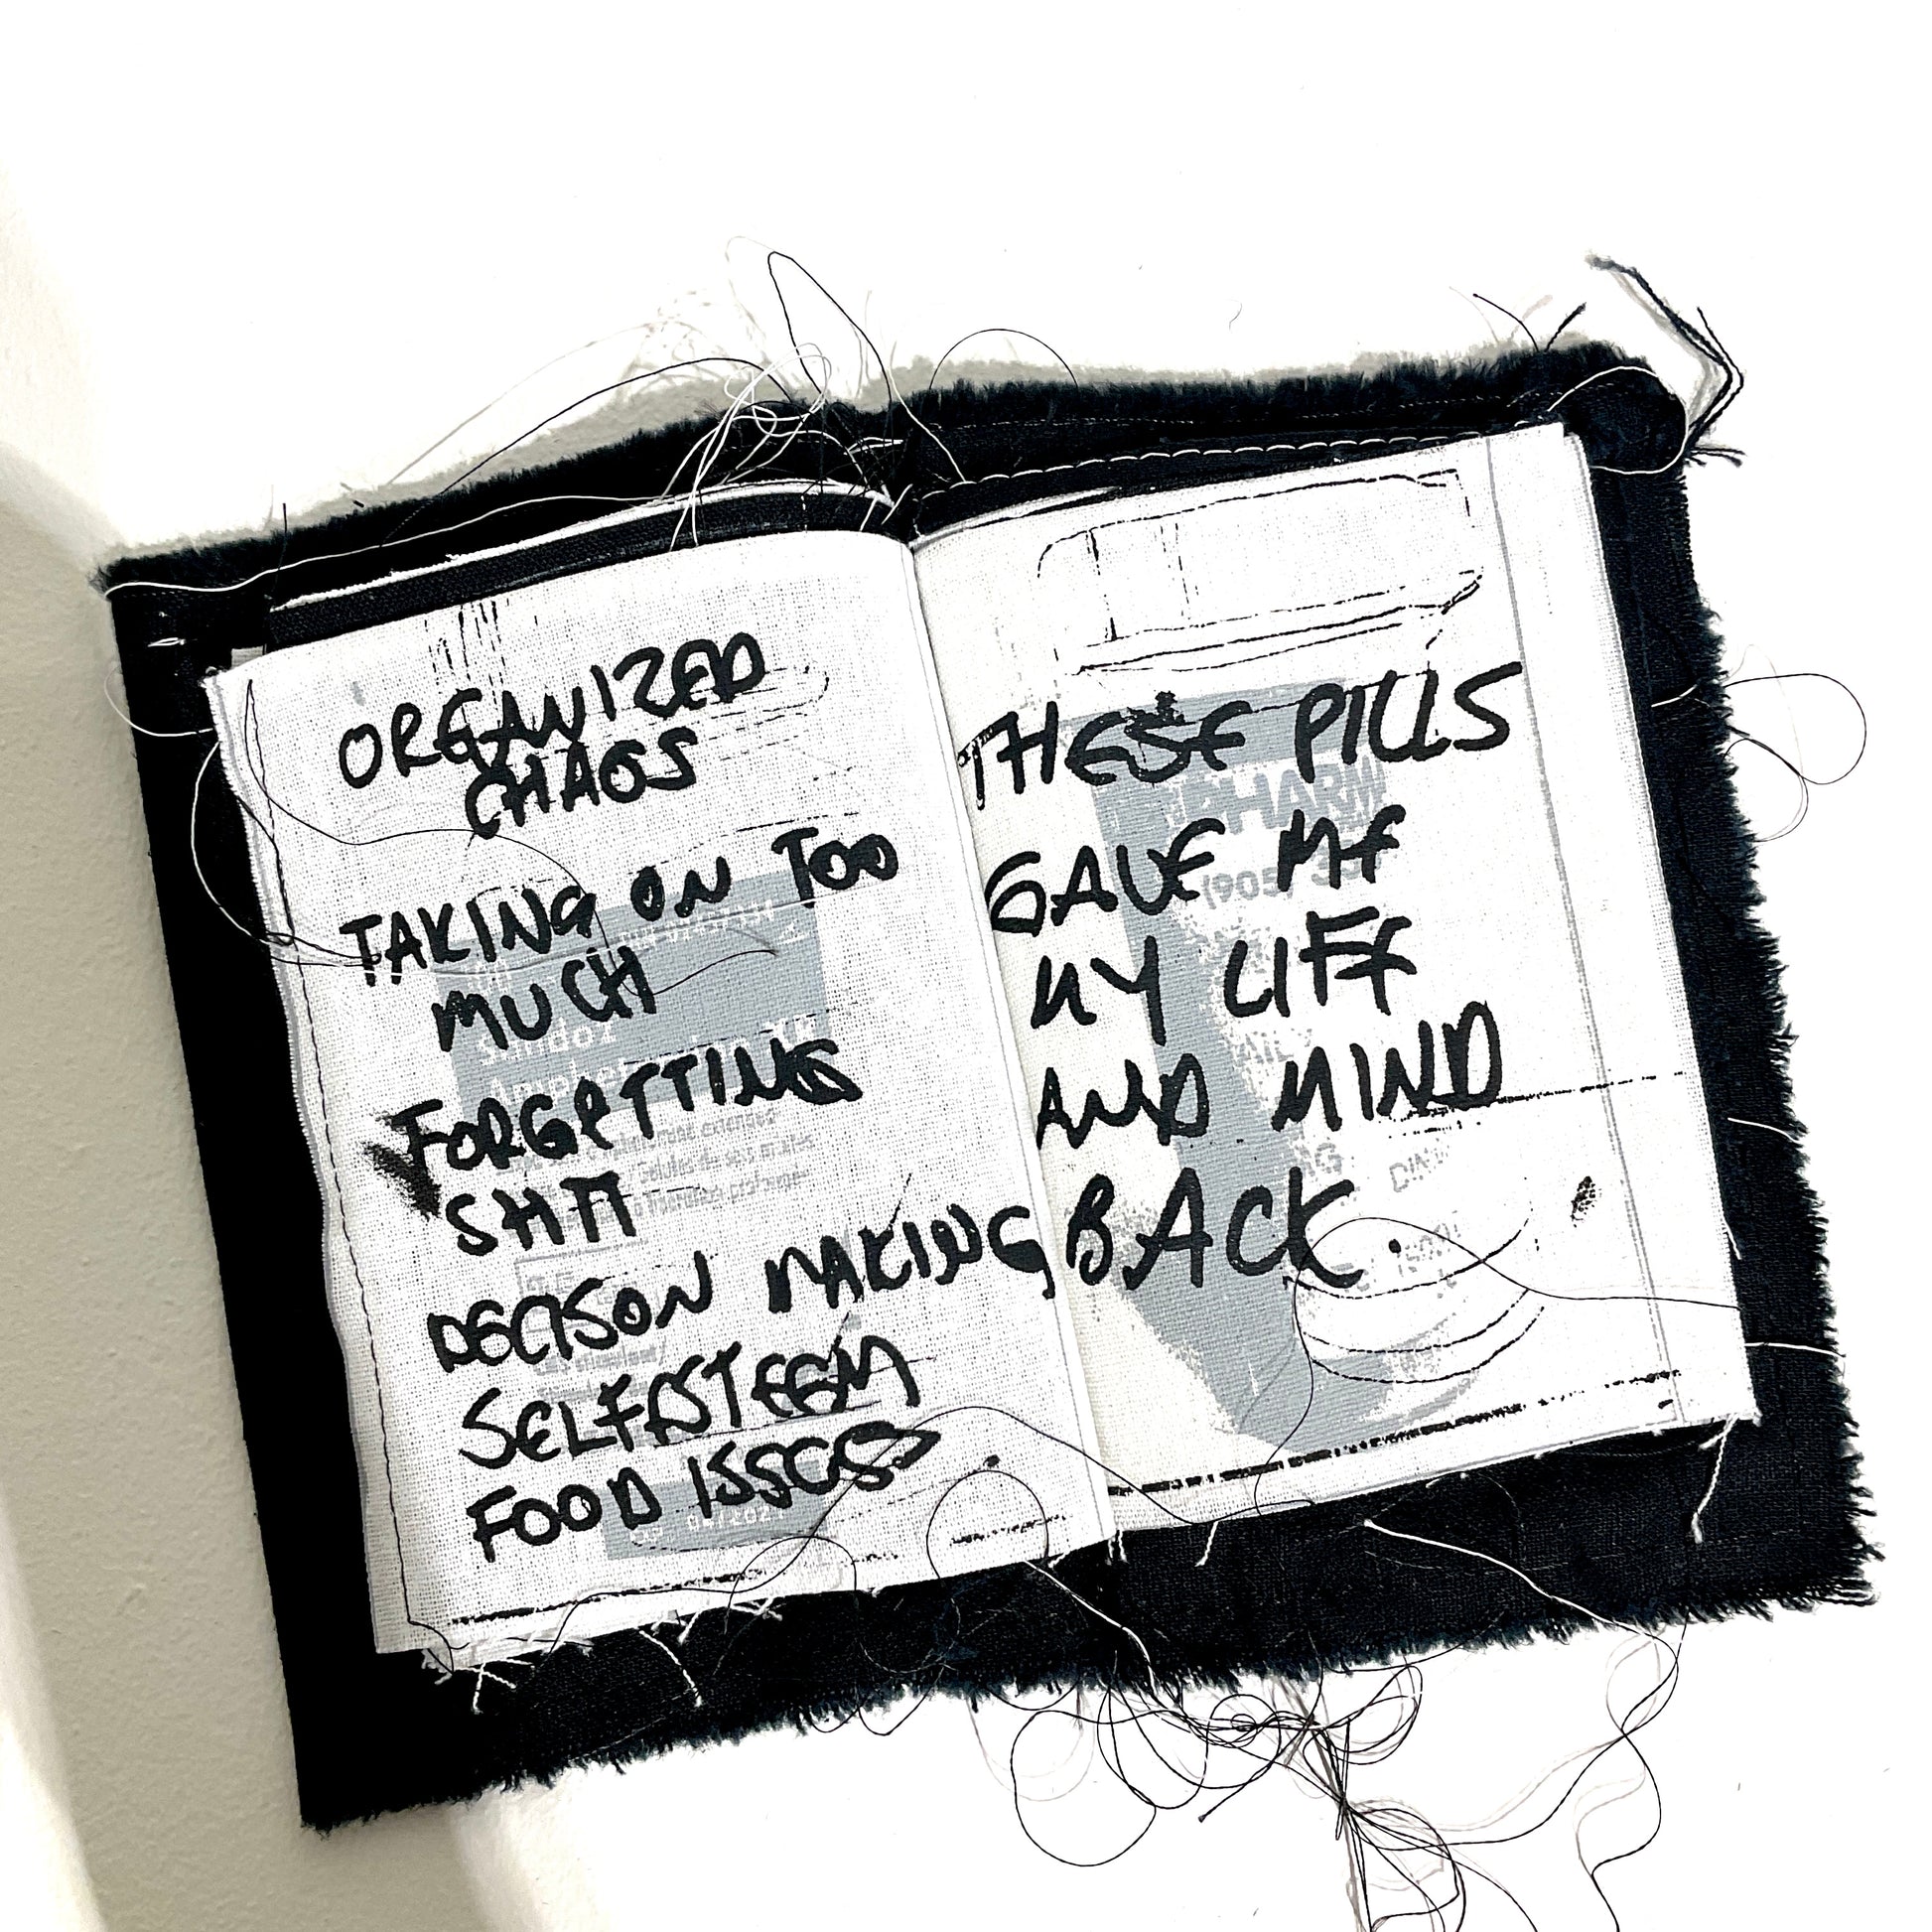 ORGANIZED
CHAOS
TAKING ON TOO
MUCH
Sandoz
FORGETTING
SHIT
DECISON MAKING
SELFESTEEM
FOOD ISSUES
04/2021
THESE PILLS
PHARM
GAVE ME
(905)
MY LIFE
AND MIND
DIN
BACK